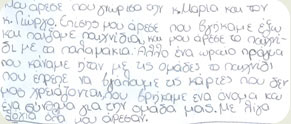 Μου άρεσε που γνώρισα την κ. Μαρία και τον
κ. Γιώργο. Επίσης μου άρεσε που βγήκαμε έξω
και παίξαμε παιχνίδια και μου άρεσε το παιχνί-
δι με τα παλαμάκια. Άλλο ένα ωραίο πράγμα
που κάναμε ήταν με τις ομάδες το παιχνίδι
που έπρεπε να βγάλουμε τις κάρτες που δεν
μας χρειάζονταν, που βρήκαμε ένα όνομα και
ένα σύνθημα για την ομάδα μας. Με λίγα
λόγια όλα μου άρεσαν.